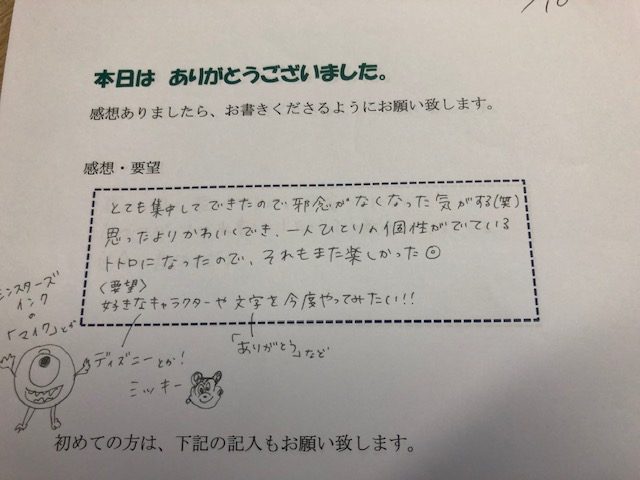 本日は ありがとうございました。
感想ありましたら、お書きくださるようにお願い致します。
感想・要望
とても集中してできたので邪念がなくなった気がする(笑)
思ったよりかわいくでき、一人ひとりの個性がでている
トトロになったので、それもまた楽しかった
〈要望〉
好きなキャラクターや文字を今度やってみたい!!
モンスターズ
インク
の
「マイク」とか
ディズニーとか!
ミッキー
「ありがとう」など
初めての方は、下記の記入もお願い致します。